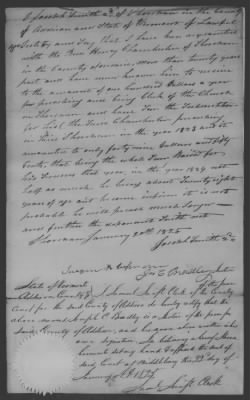 I Joseph Smith 2d of Shoreham in the County
of Addison and State of Vermont of lawful
age Testify and Say that I have been acquainted
with the Revd Henry Chamberlin of Shoreham
in the County aforesaid, more than twenty years
past and have never known him to receive
to the amount of one hundred dollars a year
for preaching and being Clerk of the Church
in Shoreham and have the Subscription
for said Chamberlin preaching
in said Shoreham in the year 1823 and it
amounted to only forty nine dollars and fifty
Cents, that being the whole sum Raised for
his Services that year, in the year 1824 not
half as much he being about Seventy eight
years of age and become infirm it is not
probable he will preach much longer
and further the deponent Saith not
Shoreham January 20th 1825
Joseph Smith 2d
Sworn & before me
State of Vermont
Addison County SS I Samuel Swift Clerk of the
Court for the said County of Addison do hereby certify that the
above named Joseph C Bradley is a Justice of the peace for
said County of Addison, and his name above written is his
own signature. In testimony whereof I have
hereunto set my hand & affixed the seal of
said Court at Middlebury the 22d day of
January AD 1825
Saml Swift Clerk